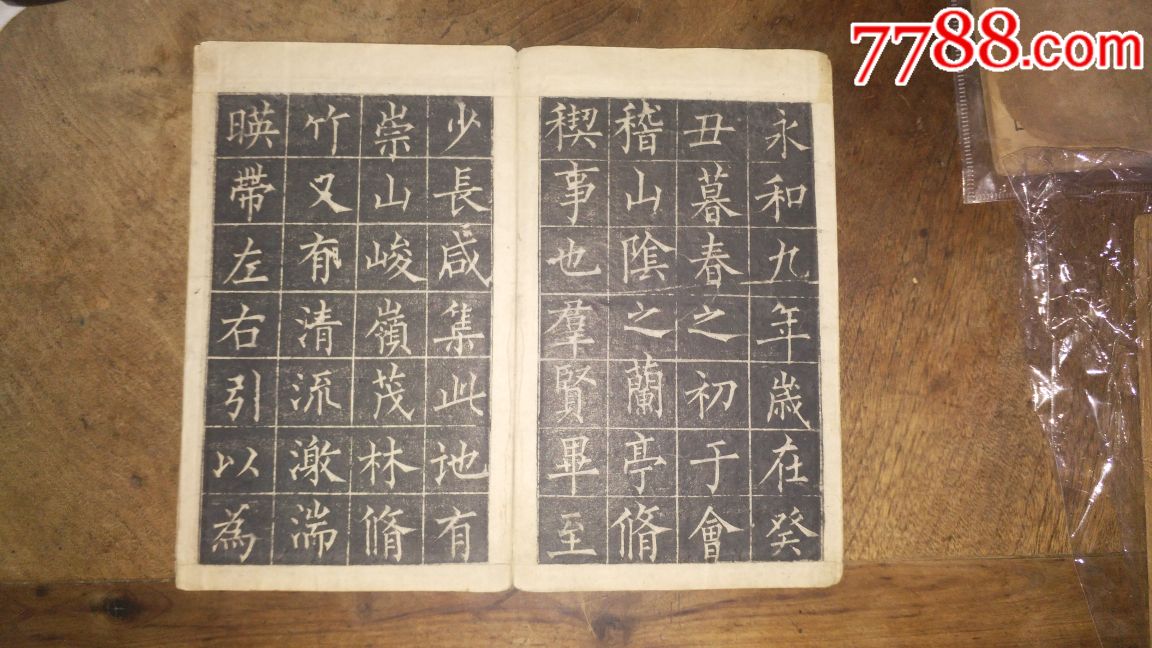 永和九年歲在癸
丑暮春之初于會
稽山陰之蘭亭脩
稧事也羣賢畢至
少長咸集此地有
崇山峻嶺茂林脩
竹又有清流激湍
暎帶左右引以為
7788.com